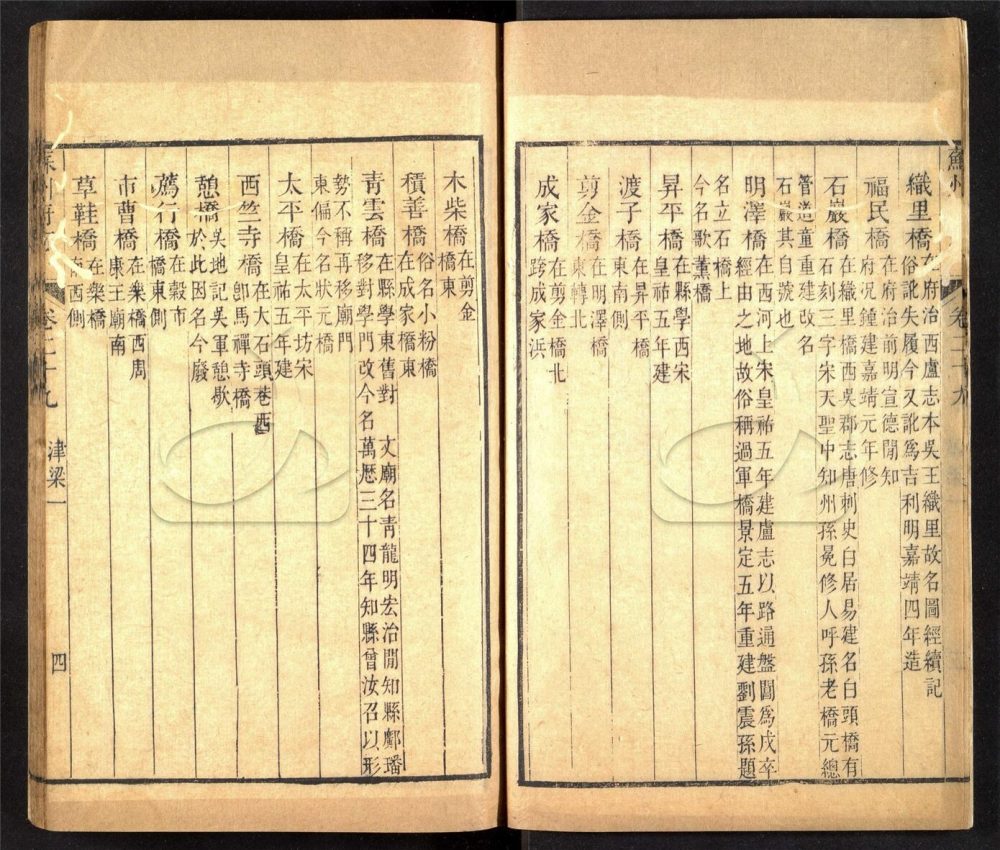 織里橋在府治西盧志本吳王織里故名圖經續記
俗訛失履今又訛爲吉利明嘉靖四年造
福民橋在府治前明宣德閒知
府况鍾建嘉靖元年修
石巖橋在織里橋西吳郡志唐刺史白居易建名白頭橋有
石刻三字宋天聖中知州孫冕修人呼孫老橋元總
管道童重建改名
石巖其自號也
明澤橋在西河上宋皇祐五年建盧志以路通盤閶爲戍卒
經由之地故俗稱過軍橋景定五年重建劉震孫題
名立石橋上
今名歌薰橋
昇平橋在縣學西宋
皇祐五年建
渡子橋在昇平橋
東南側
剪金橋在明澤橋
東轉北
成家橋在剪金橋北
跨成家浜
蘇州
卷二十九
木柴橋在剪金
橋東
積善橋俗名小粉橋
在成家橋東
青雲橋在縣學東舊對 文廟名青龍明宏治閒知縣鄺璠
移對學門改今名萬厯三十四年知縣曾汝召以形
勢不稱再移廟門
東偏今名狀元橋
太平橋在太平坊宋
皇祐五年建
西竺寺橋在大石頭巷西
卽馬禪寺橋
憩橋吳地記吳軍憩歇
於此因名今廢
薦行橋在穀市
橋東側
市曹橋在樂橋西周
康王廟南
草鞋橋在樂橋
南西側
卷二十九
津梁一
四